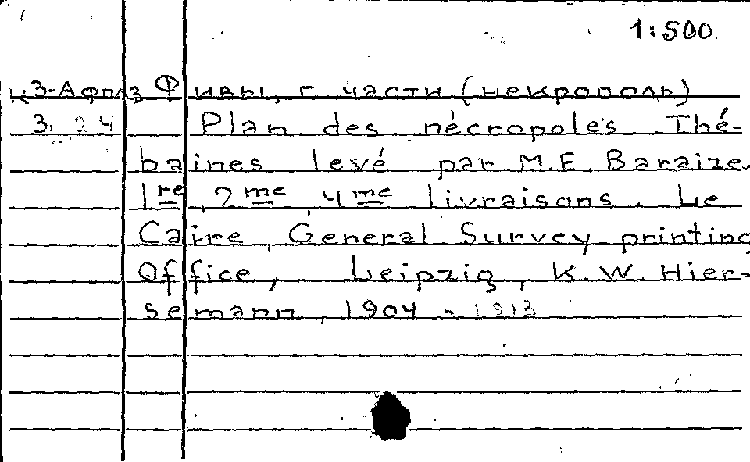 1:500
к3-Афр/3 Фивы, г. части (некрополь)
3. 24 Plan des nécropoles Thé-
baines levé par M.E. Baraize.
1re, 2me 4me livraisons. Le
Caire, General Survey printing
Office, Leipzig, K.W. Hier-
semann, 1904 - 1913